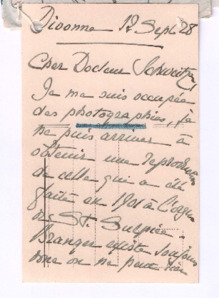 Divonne 12 Sept. 28
Cher Docteur Schweitzer,
Je me suis occupée
des photographies, je
ne puis arriver à
obtenir une reproduction
de celle qui a été
faite en 1901 à l'orgue
de St. Sulpice.
Branger existe toujours
mais on ne peut rien